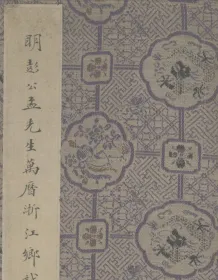 明彭公孟先生萬曆浙江鄉試